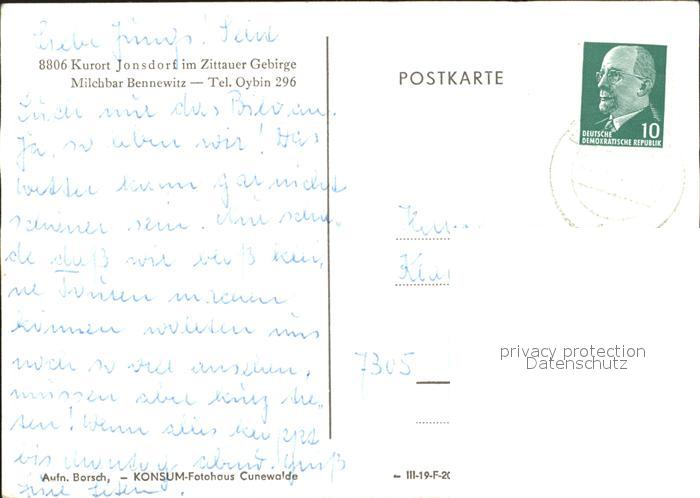 Liebe Jungs! Seid
8806 Kurort Jonsdorf im Zittauer Gebirge
Milchbar Bennewitz — Tel. Oybin 296
Euch nur das Bild an.
Ja, so leben wir! Das
Wetter kann gar nicht
schöner sein. Nur scha-
de daß wir bloß kei-
ne Touren machen
können wollten uns
noch so viel ansehen,
müssen aber
ten! Wenn alles klappt
bis Montag abend. Gruß
Aufn. Borsch, – KONSUM-Fotohaus Cunewalde
POSTKARTE
10
DEUTSCHE
DEMOKRATISCHE REPUBLIK
7305
privacy protection
Datenschutz
– III-19-F-20